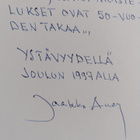 LUKSET OVAT 50-VUO-
DEN TAKAA,,,
YSTÄVYYDELLÄ
JOULUN 1997 ALLA
Jaakko